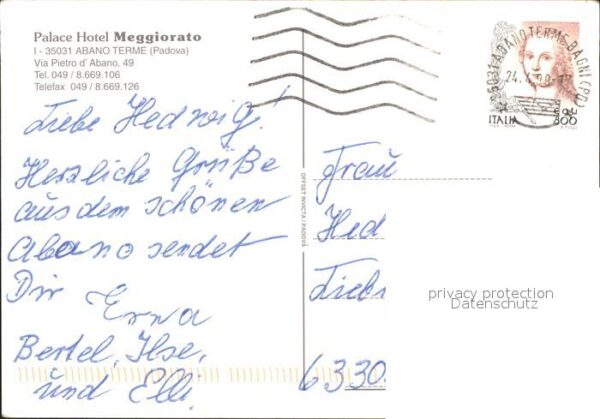 Palace Hotel Meggiorato
I - 35031 ABANO TERME (Padova)
Via Pietro d' Abano, 49
Tel. 049 / 8.669.106
Telefax 049 / 8.669.126
Liebe Hedwig!
Herzliche Grüße
aus dem schönen
Abano sendet
Dir Erna
Bertel, Ilse,
und Elli
OFFSET INVICTA / PADOVA
35031 ABANO TERME BAGNI (PD)
24.4.98
ITALIA 800
Frau
Hed
6330
privacy protection
Datenschutz